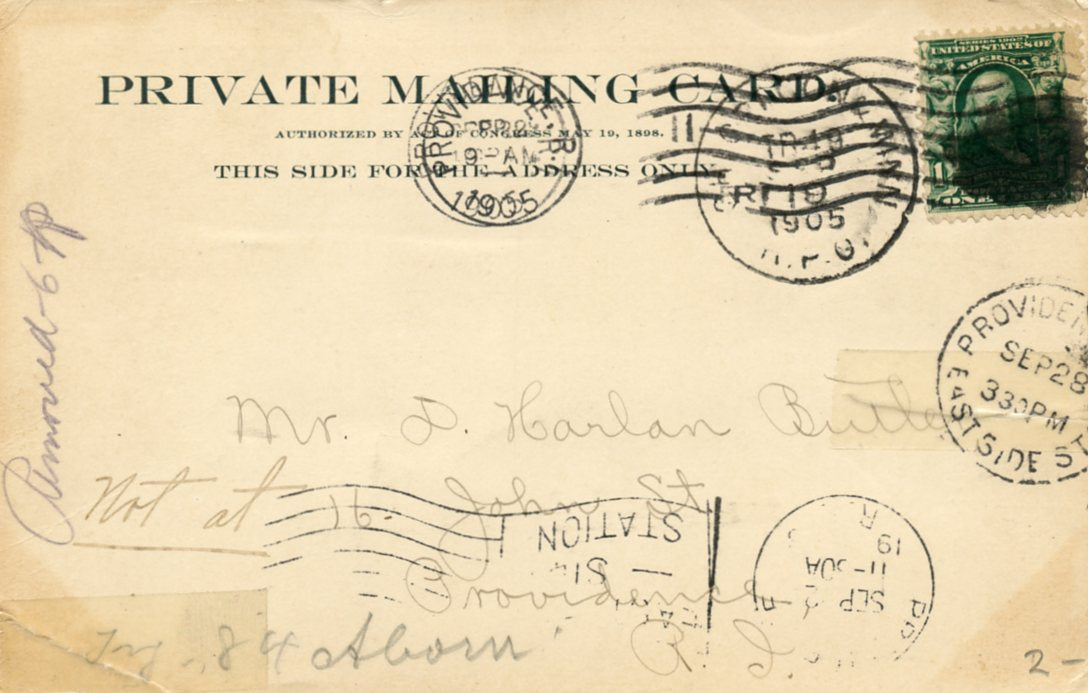 SERIES 1902
UNITED STATES OF
AMERICA
PRIVATE MAILING CARD.
AUTHORIZED BY ACT OF CONGRESS MAY 19, 1898.
THIS SIDE FOR THE ADDRESS ONLY.
PROVIDENCE, R.
SEP 2
9- AM
1905
11
TR 19
1905
R.P.O.
ONE
PROVIDEN
SEP 28
330PM
EAST SIDE ST
Removed - 6
Mr. D. Harlan Butle
Not at 16- John St
STATION
11-30A
SEP 2
19
R
Providence
R. I.
Try 84 Aborn
2-